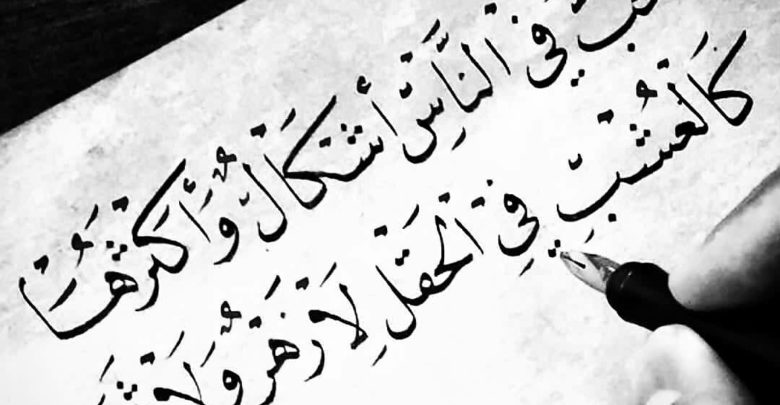 في الناس أشكال وأكثرها
كالعشب في الحقل لا زهر ولا